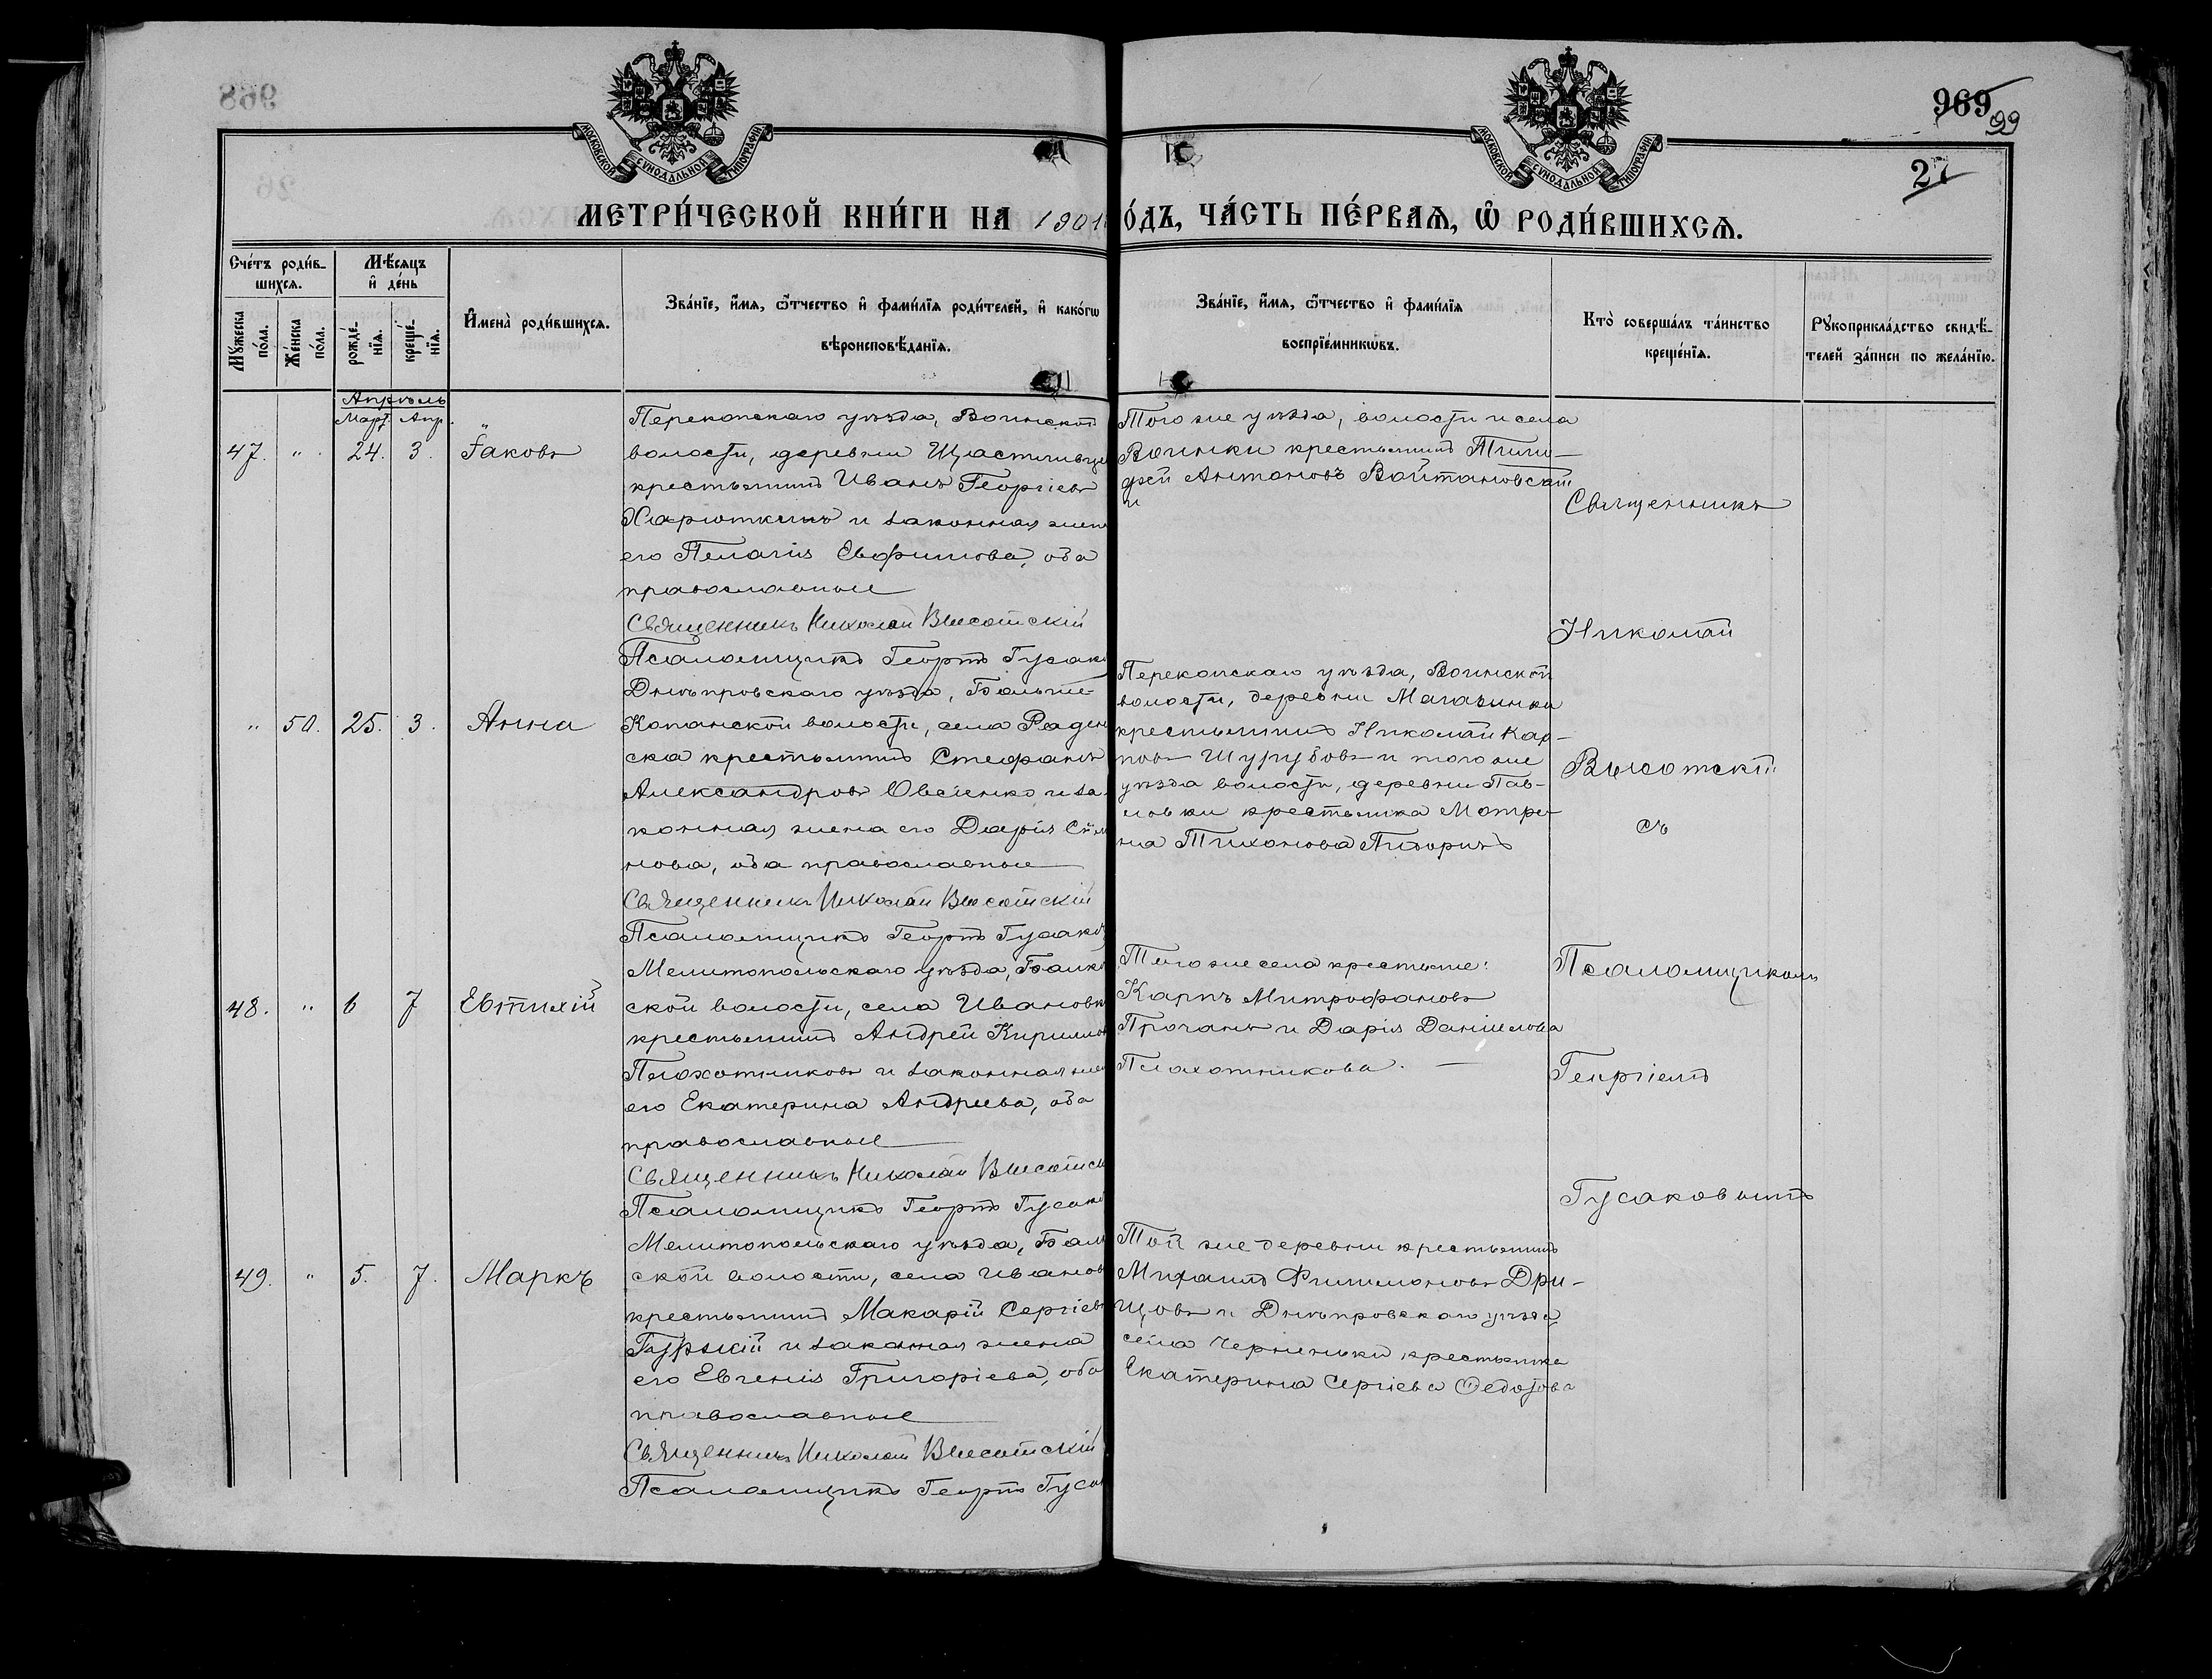 969
99
27
МОСКОВСКОЙ СУНОДАЛЬНОЙ ТИПОГРАФІИ
МОСКОВСКОЙ СУНОДАЛЬНОЙ ТИПОГРАФІИ
МЕТРИ́ЧЕСКОЙ КНИ́ГИ НА 1901
О́ДЪ, ЧА́СТЬ ПЕ́РВАѦ, Ѡ҆ РОДИ́ВШИХСѦ.
Сче́тъ роди́в-
шихсѧ.
Мꙋ́жеска
по́ла.
Же́нска
по́ла.
Мѣ́сѧцъ
и҆ де́нь
рожде́-
нїѧ.
креще́-
нїѧ.
И҆мена̀ роди́вшихсѧ.
Зва́нїе, и҆́мѧ, ѻ҆́тчество и҆ фами́лїѧ роди́телей, и҆ како́гѡ
вѣроисповѣ́данїѧ.
Зва́нїе, и҆́мѧ, ѻ҆́тчество и҆ фами́лїѧ
воспрїе́мникѡвъ.
Кто̀ соверша́лъ та́инство
креще́нїѧ.
Рꙋкоприкла́дство свидѣ́-
телей за́писи по жела́нїю.
Апрѣль
Март. Апр.
47. " 24. 3. Іаковъ
Перекопскаго уѣзда, Воинской
волости, деревни Щастливце
крестьянинъ Иванъ Георгіевъ
Харюткинъ и законная жен
его Пелагія Евфимова, оба
православные
Священникъ Николай Высотскій
Псаломщикъ Георгій Гусако
Того же уѣзда, волости и села
Воинки крестьянинъ Тимо-
фей Антоновъ Войтановскій
и
" 50. 25. 3. Анна
Днѣпровскаго уѣзда, Больше-
Копанской волости, села Раден
ска крестьянинъ Стефанъ
Александровъ Овсіенко и за-
конная жена его Дарія Сим
нова, оба православные
Священникъ Николай Высотскій
Псаломщикъ Георгій Гусако
Перекопскаго уѣзда, Воинской
волости, деревни Магазинки
крестьянинъ Николай Кар-
повъ Шурубовъ и того же
уѣзда волости, деревни Пав-
ловки крестьянка Матре-
на Тихонова
48. " 6 7 Евтихій
Мелитопольскаго уѣзда, Балк
ской волости, села Ивановк
крестьянинъ Андрей Кирилло
Плохотниковъ и законная жен
его Екатерина Андреева, оба
православные
Священникъ Николай Высотск
Псаломщикъ Георгій Гусако
Того же села крестьяне:
Карпъ Митрофановъ
Прочанъ и Дарія Даніилова
Плахотникова. —
49. " 5. 7. Маркъ
Мелитопольскаго уѣзда, Балк
ской волости, села Иванов
крестьянинъ Макарій Сергіевъ
Гурскій и законная жена
его Евгенія Григоріева, оба
православные
Священникъ Николай Высотскій
Псаломщикъ Георгій Гусак
Той же деревни крестьянинъ
Михаилъ Филимоновъ Дри-
щовъ и Днѣпровскаго уѣзда
села Черненьки крестьянка
Екатерина Сергіева Ѳедотова
Священникъ
Николай
Высотскій
съ
Псаломщикомъ
Георгіемъ
Гусаковымъ